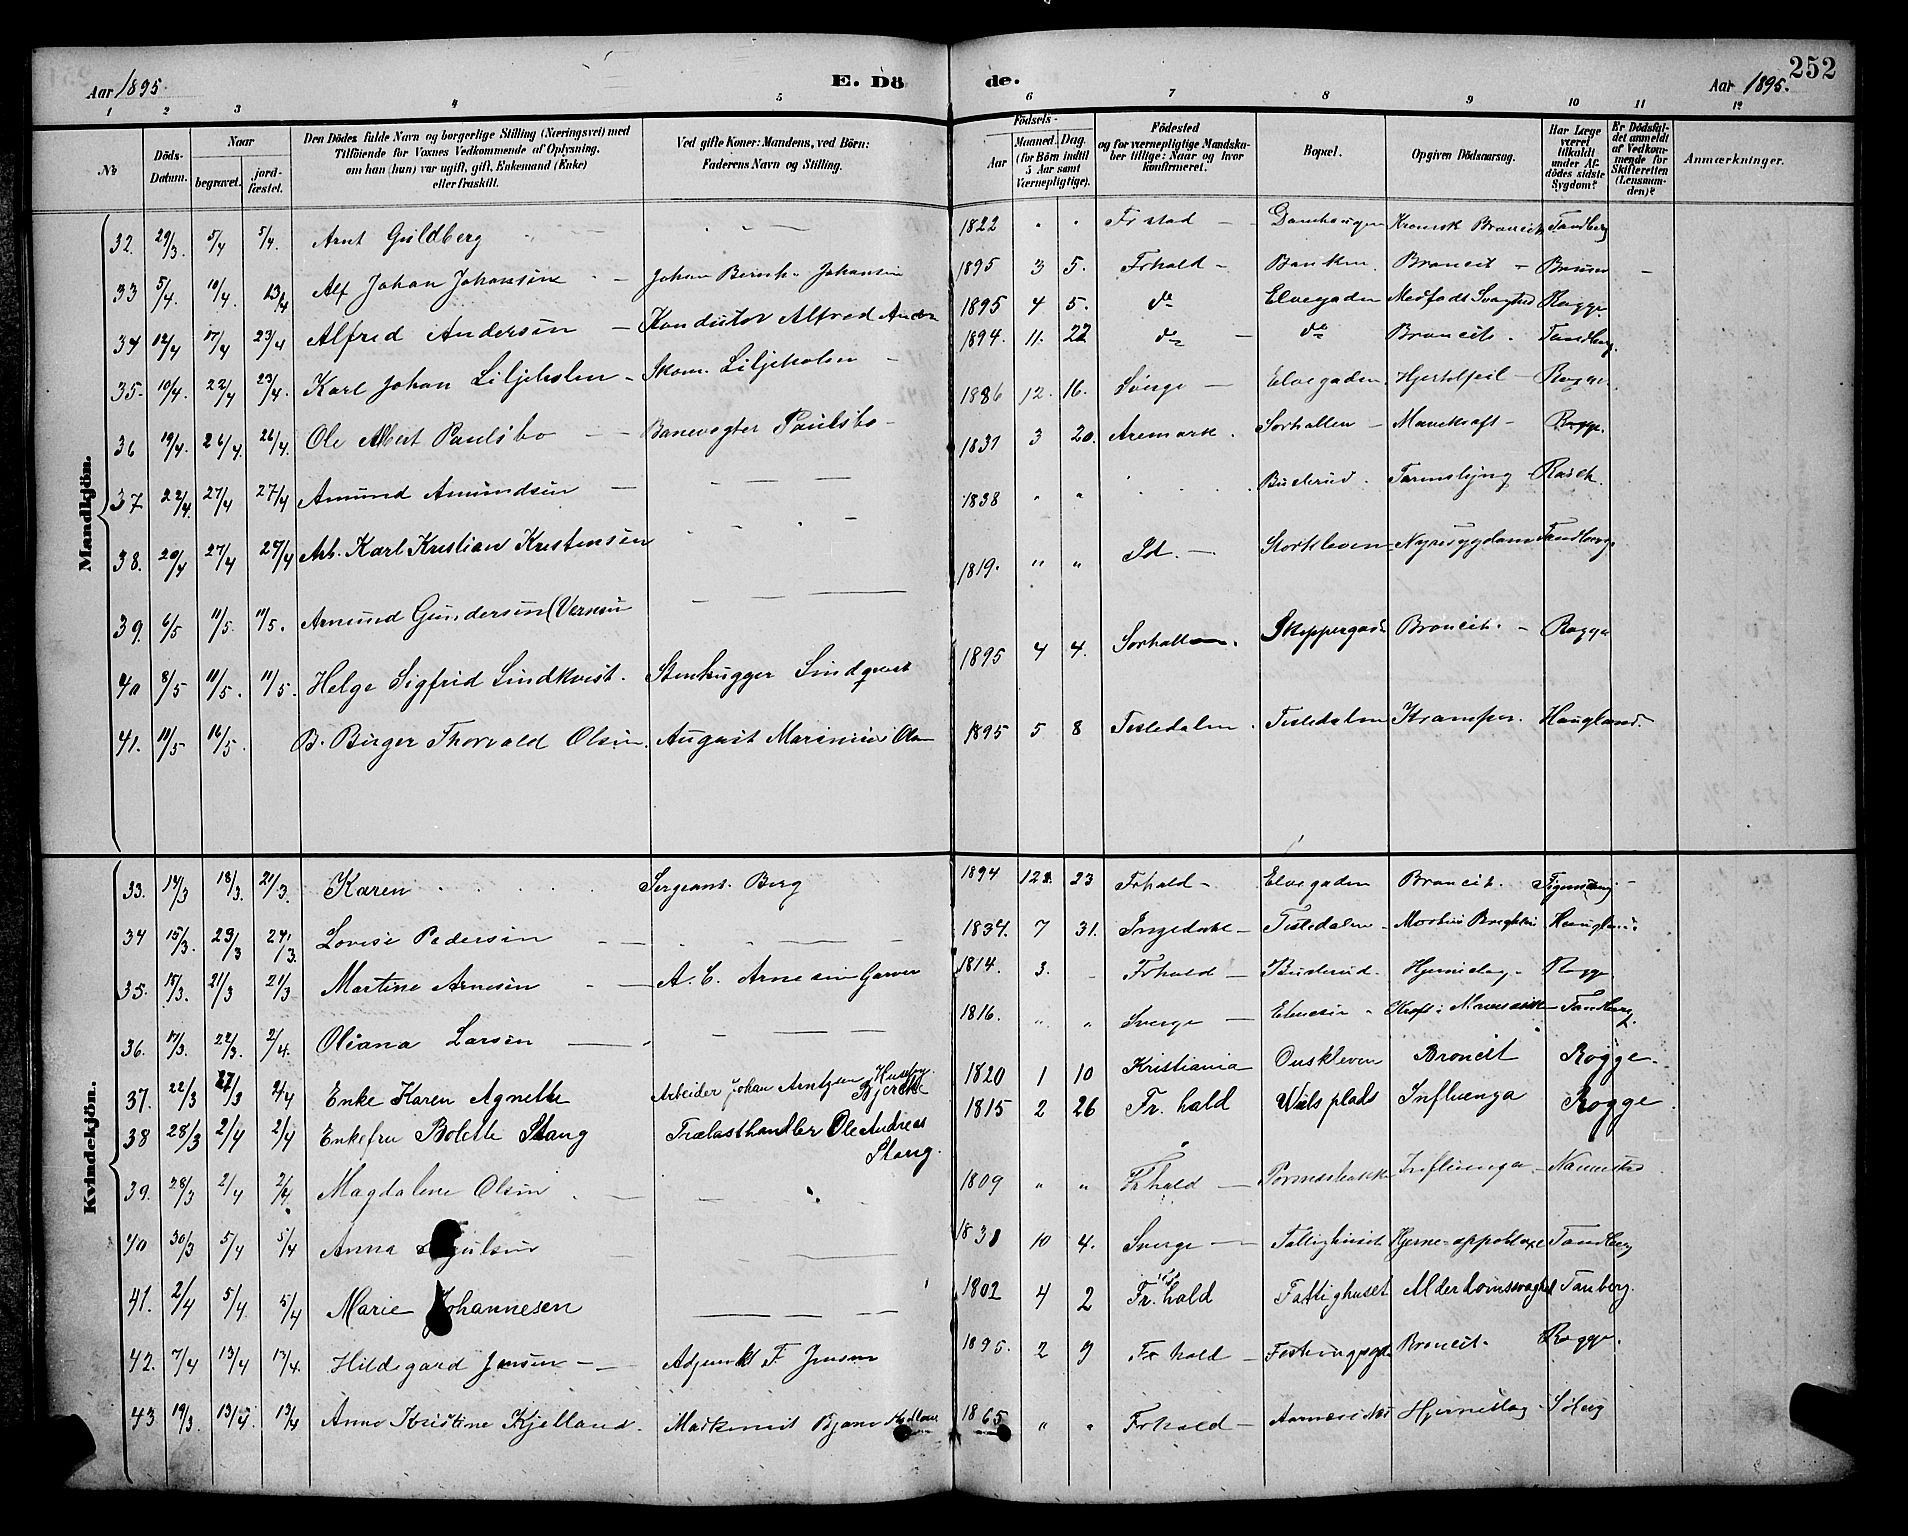 252
Aar 1895. E. Dö de. Aar 1895.
1 2 3 4 5 6 7 8 9 10 11 12
No
Döds-Datum.
Naar
begravet.
jordfæstet.
Den Dödes fulde Navn og borgerlige Stilling (Næringsvei) med
Tilföiende for Voxnes Vedkommende af Oplysning,
om han (hun) var ugift, gift, Enkemand (Enke)
eller fraskilt.
Ved gifte Koner: Mandens, ved Börn:
Faderens Navn og Stilling.
Födsels-
Aar
Maaned. Dag.
(for Börn indtil
5 Aar samt
Værnepligtige).
Födested
og for værnepligtige Mandska-
ber tillige: Naar og hvor
konfirmeret.
Bopæl.
Opgiven Dödsaarsag.
Har Læge
været
tilkaldt
under Af-
dödes sidste
Sygdom?
Er Dödsfal-
det anmeldt
af Vedkom-
mende for
Skifteretten
(Lensman-
den)?
Anmærkninger.
Mandkjön.
32. 29/3. 5/4 5/4. Arnt Guldberg 1822 " " Frstad Damhaugen Kronisk Broncit Tandberg
33 5/4. 10/4. 13/4 Alf Johan Johansen Johan Bernh. Johansen 1895 3 5. Frhald Banken Broncit
34 12/4 17/4 23/4 Alfred Andersen Konduktør Alfred 1895 4 5. do Elvegaden Medfødt Svaghed Rogge
35. 10/4. 22/4 23/4. Karl Johan Liljeholen Skom. Liljeholen 1894. 11. 22 do do Broncit. Tandberg.
36 19/4. 26/4. 26/4. Ole Albert Paulsbo Banevogter Paulsbo 1886 12. 16. Sverge Elvegaden Hjertefeil Rogge.
37 22/4. 27/4 27/4 Amund Amundsen 1831 3 20. Aremark. Sørhallen Rogge.
38. 20/4 27/4 27/4 Arb. Karl Kristian Kristensen 1838 " " Buderud. Tarmslyng
39. 6/5 11/5. 11/5. Amund Gundersen 1819. " " Id. Storkleven Nyresygdom Tandberg
40 8/5 11/5. 11/5. Helge Sigfrid Lindkvist. Stenhugger Lindqvist 1895 4 4. Sørhallen. Skippergade Broncit. Rogge
41. 11/5 16/5. B. Birger Thorvald Olsen. August Marinius Olsen 1895 5 8 Tistedalen. Tistedalen Kramper. Haugland.
Kvindekjön.
33. 14/3 18/3. 21/3. Karen Sergeant. Berg 1894 12. 23 Frhald Elvegaden Broncit.
34 15/3. 23/3 24/3. Lovise Pedersen 1834. 7 31. Ingedahl Tistedalen Morbus Brightii Haugland
35. 15/3. 21/3 21/3 Martine Arnesen A. C. Arnesen Garver 1814. 3. Frhald Buderud. Hjerneslag Rogge
36. 17/3. 22/3. 2/4. Oliana Larsen 1816. " " Sverge Tandberg.
37. 22/3 27/3 2/4 Enke Karen Agnette Arbeider Johan Arntzen Husebye Bjercke 1820 1 10 Kristiania Ouskleven Broncit Rogge.
38 28/3 2/4 2/4 Enkefru Bolette Stang Trælasthandler Ole Andreas Stang. 1815 2 26 Fr. hald Niels plads Influenza Rogge
39. 28/3 2/4 Magdalene Olsen 1809 " " Frhald Influenza
40 30/3 5/4 5/4 Anna 1831 10 4. Sverge Fattighuset Hjerne-appoplexe Tandberg
41. 2/4 5/4. 5/4 Marie Johannesen 1802 4 2 Fr. hald Fattighuset Alderdomssvaghed Tanberg.
42. 7/4 13/4 13/4. Hildegard Jensen Adjunkt F. Jensen 1895. 2 9 Fr hald Broncit. Rogge.
43 19/3. 13/4. 13/4 Anne Kristine Kjelland. 1865 " " Frhald Hjerneslag